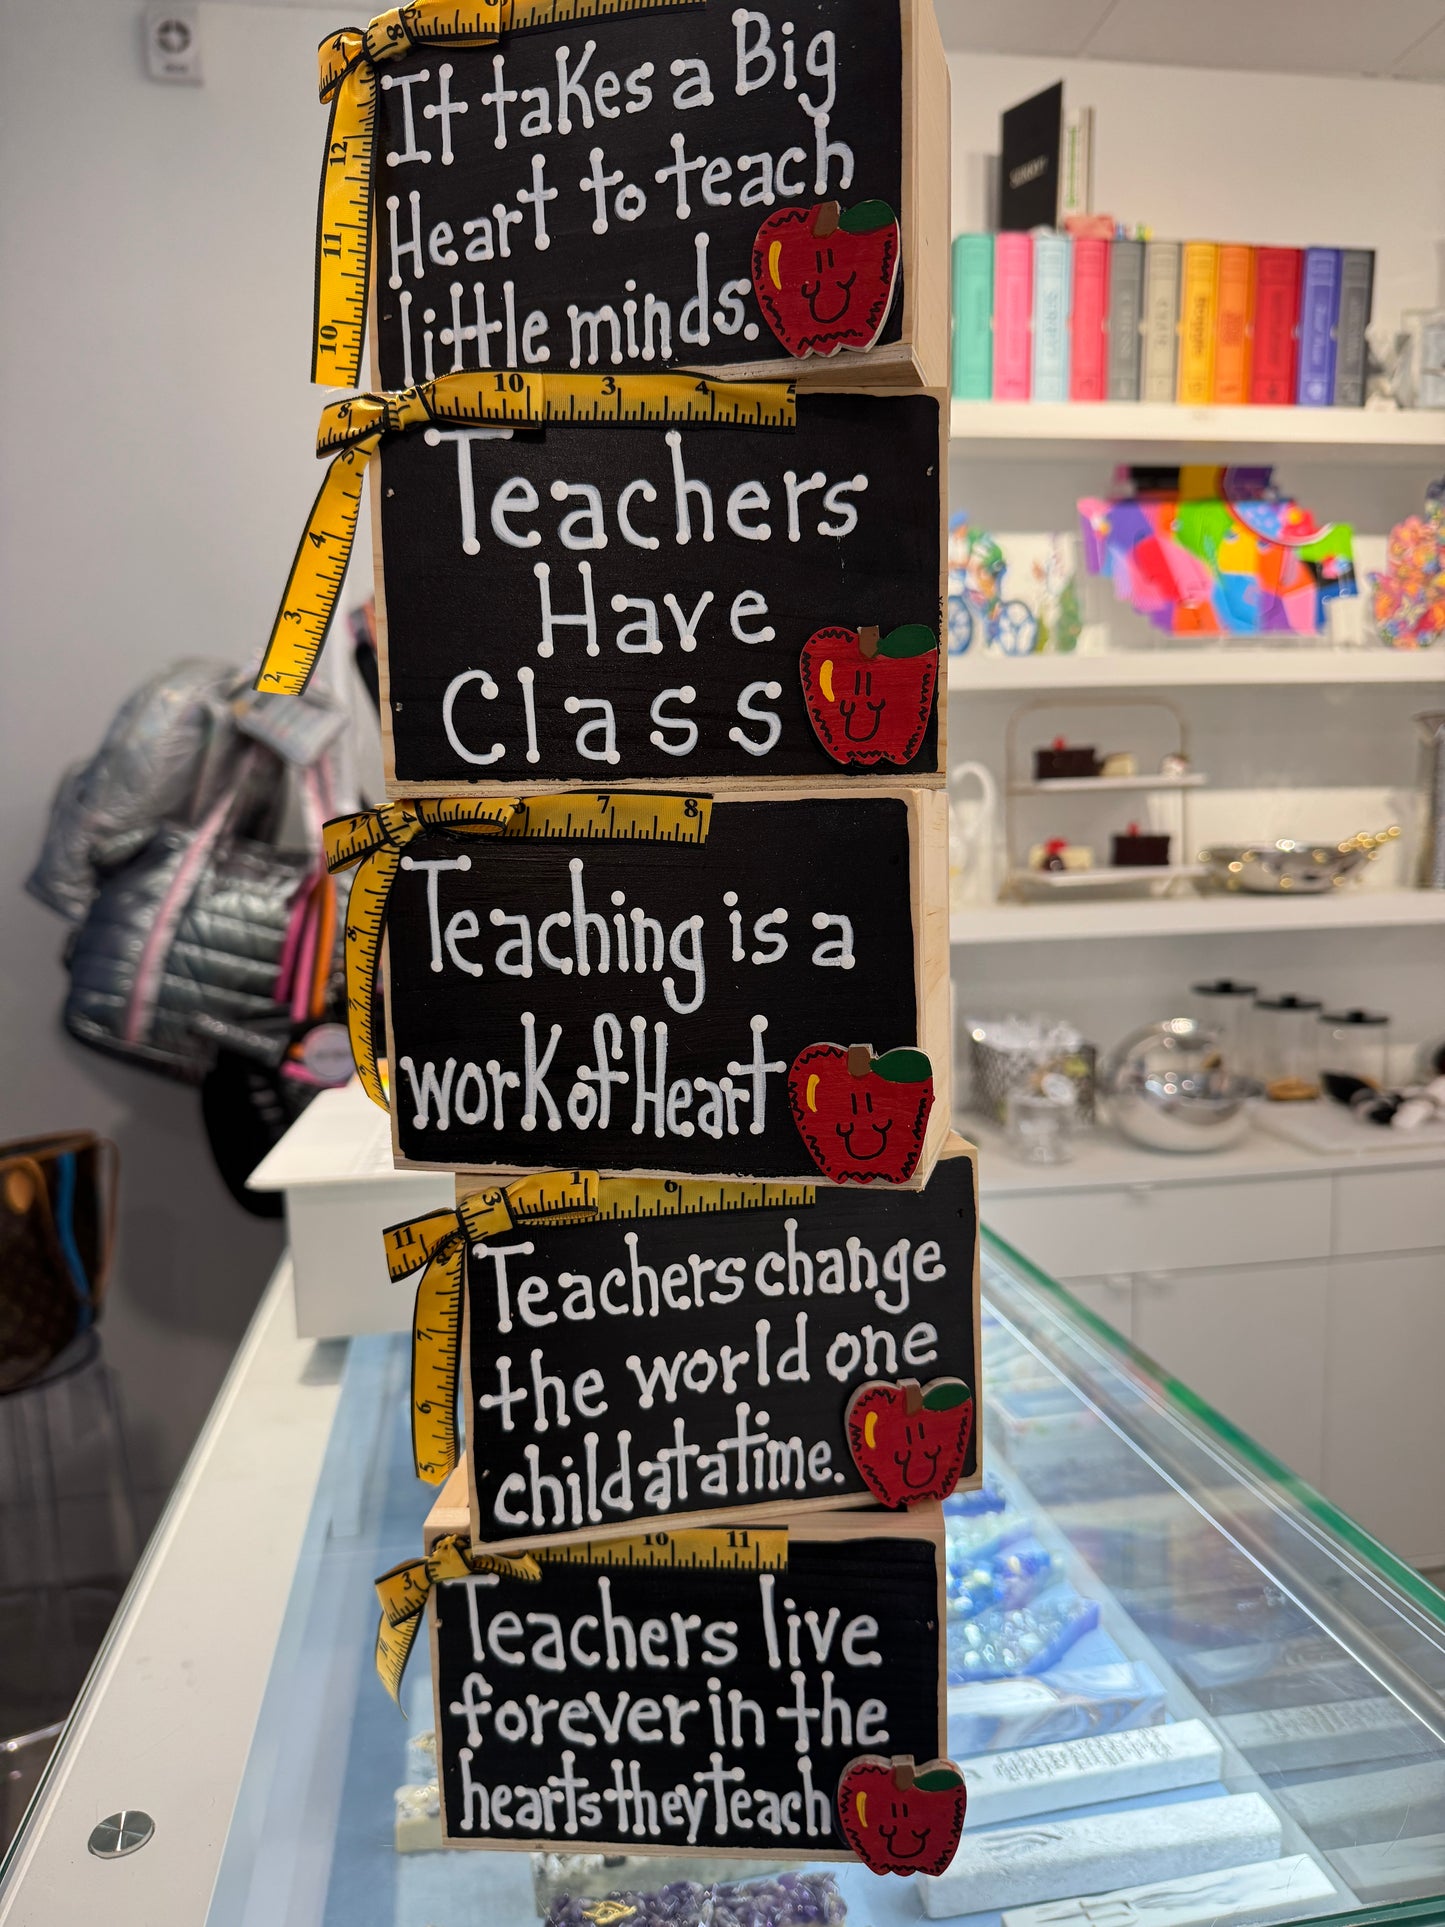 It takes a Big
Heart to teach
little minds.
Teachers
Have
Class
Teaching is a
work of Heart
Teachers change
the world one
child at a time.
Teachers live
forever in the
hearts they teach